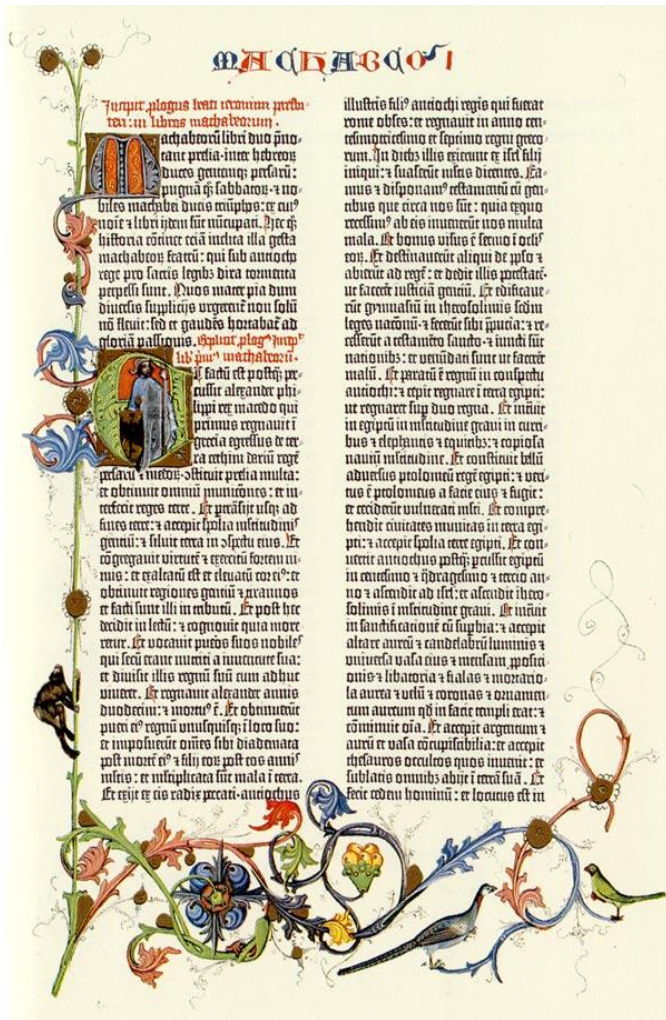 MACHABEO I
Incipit plogus beati ieronimi presbi-
teri in libros machabeorum.
Machabeorū libri duo p̄no-
tant prelia inter hebreoꝝ
duces gentemqꝫ persarū:
pugnā qꝫ sabbatoꝝ ⁊ no-
biles machabei ducis triūphos: ex cuiꝰ
noīe ⁊ libri ijdem sūt nūcupati. Hec qꝫ
historia cōtinet etiā inclita illa gesta
machabeoꝝ fratrū: qui sub antiocho
rege pro sacris legibꝫ dira tormenta
perpessi sunt. Quos mater pia dum
diuersis supplicijs vrgerent̄ non solū
nō fleuit: sed et gaudēs hortabat̄ ad
gloriā passionis. Explicit plogꝰ Incipit
lib̄ primꝰ machabeorū.
Et factū est postqꝫ per-
cussit alexander phi-
lippi rex macedo qui
primus regnauit ī
grecia egressus de ter-
ra cethim dariū regē
persarū ⁊ medoꝝ: ꝯstituit prelia multa:
et obtinuit omniū munitiones: et in-
terfecit reges terre. Et ꝑtrāsijt usqꝫ ad
fines terre: ⁊ accepit spolia m̄ltitudinis
gentiū: ⁊ siluit terra in ꝯspectu eius. Et
cōgregauit virtutē ⁊ exercitū fortem ni-
mis: et exaltatū est et eleuatū cor eiꝰ: et
obtinuit regiones gentiū ⁊ tirannos
et facti sunt illi in tributū. Et post hec
decidit in lectū: ⁊ cognouit quia more-
retur. Et vocauit pueros suos nobiles
qui secū erant nutriti a iuuentute sua:
et diuisit illis regnū suū cum adhuc
viueret. Et regnauit alexander annis
duodecim: ⁊ mortuꝰ ē. Et obtinuerūt
pueri eiꝰ regnū unusquisqꝫ ī loco suo:
et imposuerūt om̄es sibi diademata
post mortē eiꝰ ⁊ filij eoꝝ post eos annis
multis: et m̄ltiplicata sūt mala ī terra.
Et exijt ex eis radix peccati antiochus
illustris filiꝰ antiochi regis qui fuerat
rome obses: et regnauit in anno cen-
tesimotricesimo et septimo regni greco-
rum. In diebꝫ illis exierunt ex isrl̄ filij
iniqui: ⁊ suaserūt m̄ltis dicentes. Ea-
mus et disponamꝰ testamentū cū gen-
tibus que circa nos sūt: quia exquo
recessimꝰ ab eis inuenerūt nos multa
mala. Et bonus visus ē sermo ī oculis
eoꝝ. Et destinauerūt aliqui de pplo ⁊
abierūt ad regē: et dedit illis potestatē
ut facerēt iusticiā gentiū. Et edificaue-
rūt gymnasiū in iherosolimis sedm
leges nationū: ⁊ fecerūt sibi p̄pucia: ⁊ re-
cesserūt a testamēto sancto: ⁊ iuncti sūt
nationibꝫ: et venūdati sunt ut facerēt
malū. Et paratū ē regnū in conspectu
antiochi: ⁊ cepit regnare ī terra egipti:
ut regnaret sup duo regna. Et ītrauit
in egiptū in m̄ltitudine graui in curri-
bus ⁊ elephantis ⁊ equitibꝫ: ⁊ copiosa
nauiū m̄ltitudine. Et constituit bellū
aduersus ptolomeū regē egipti: ⁊ veri-
tus ē ptolomeus a facie eius ⁊ fugit:
et ceciderūt vulnerati m̄lti. Et compre-
hendit ciuitates munitas in terra egi-
pti: ⁊ accepit spolia terre egipti. Et con-
uertit antiochus postqꝫ ꝑcussit egiptū
in centesimo et q̄dragesimo ⁊ tercio an-
no ⁊ ascendit ad isrl̄: et ascendit ihero-
solimis ī m̄ltitudine graui. Et ītrauit
in sanctificationē cū supbia: ⁊ accepit
altare aureū ⁊ candelabrū luminis ⁊
vniuersa vasa eius ⁊ mensam ppositi-
onis ⁊ libatoria ⁊ fialas ⁊ mortario-
la aurea ⁊ velū ⁊ coronas ⁊ ornamen-
tum aureum qd in facie templi erat: ⁊
cōminuit oīa. Et accepit argentum ⁊
aurū et vasa cōcupiscibilia: et accepit
thesauros occultos quos inuenit: et
sublatis omnibꝫ abijt ī terrā suā. Et
fecit cedem hominū: et locutus est in